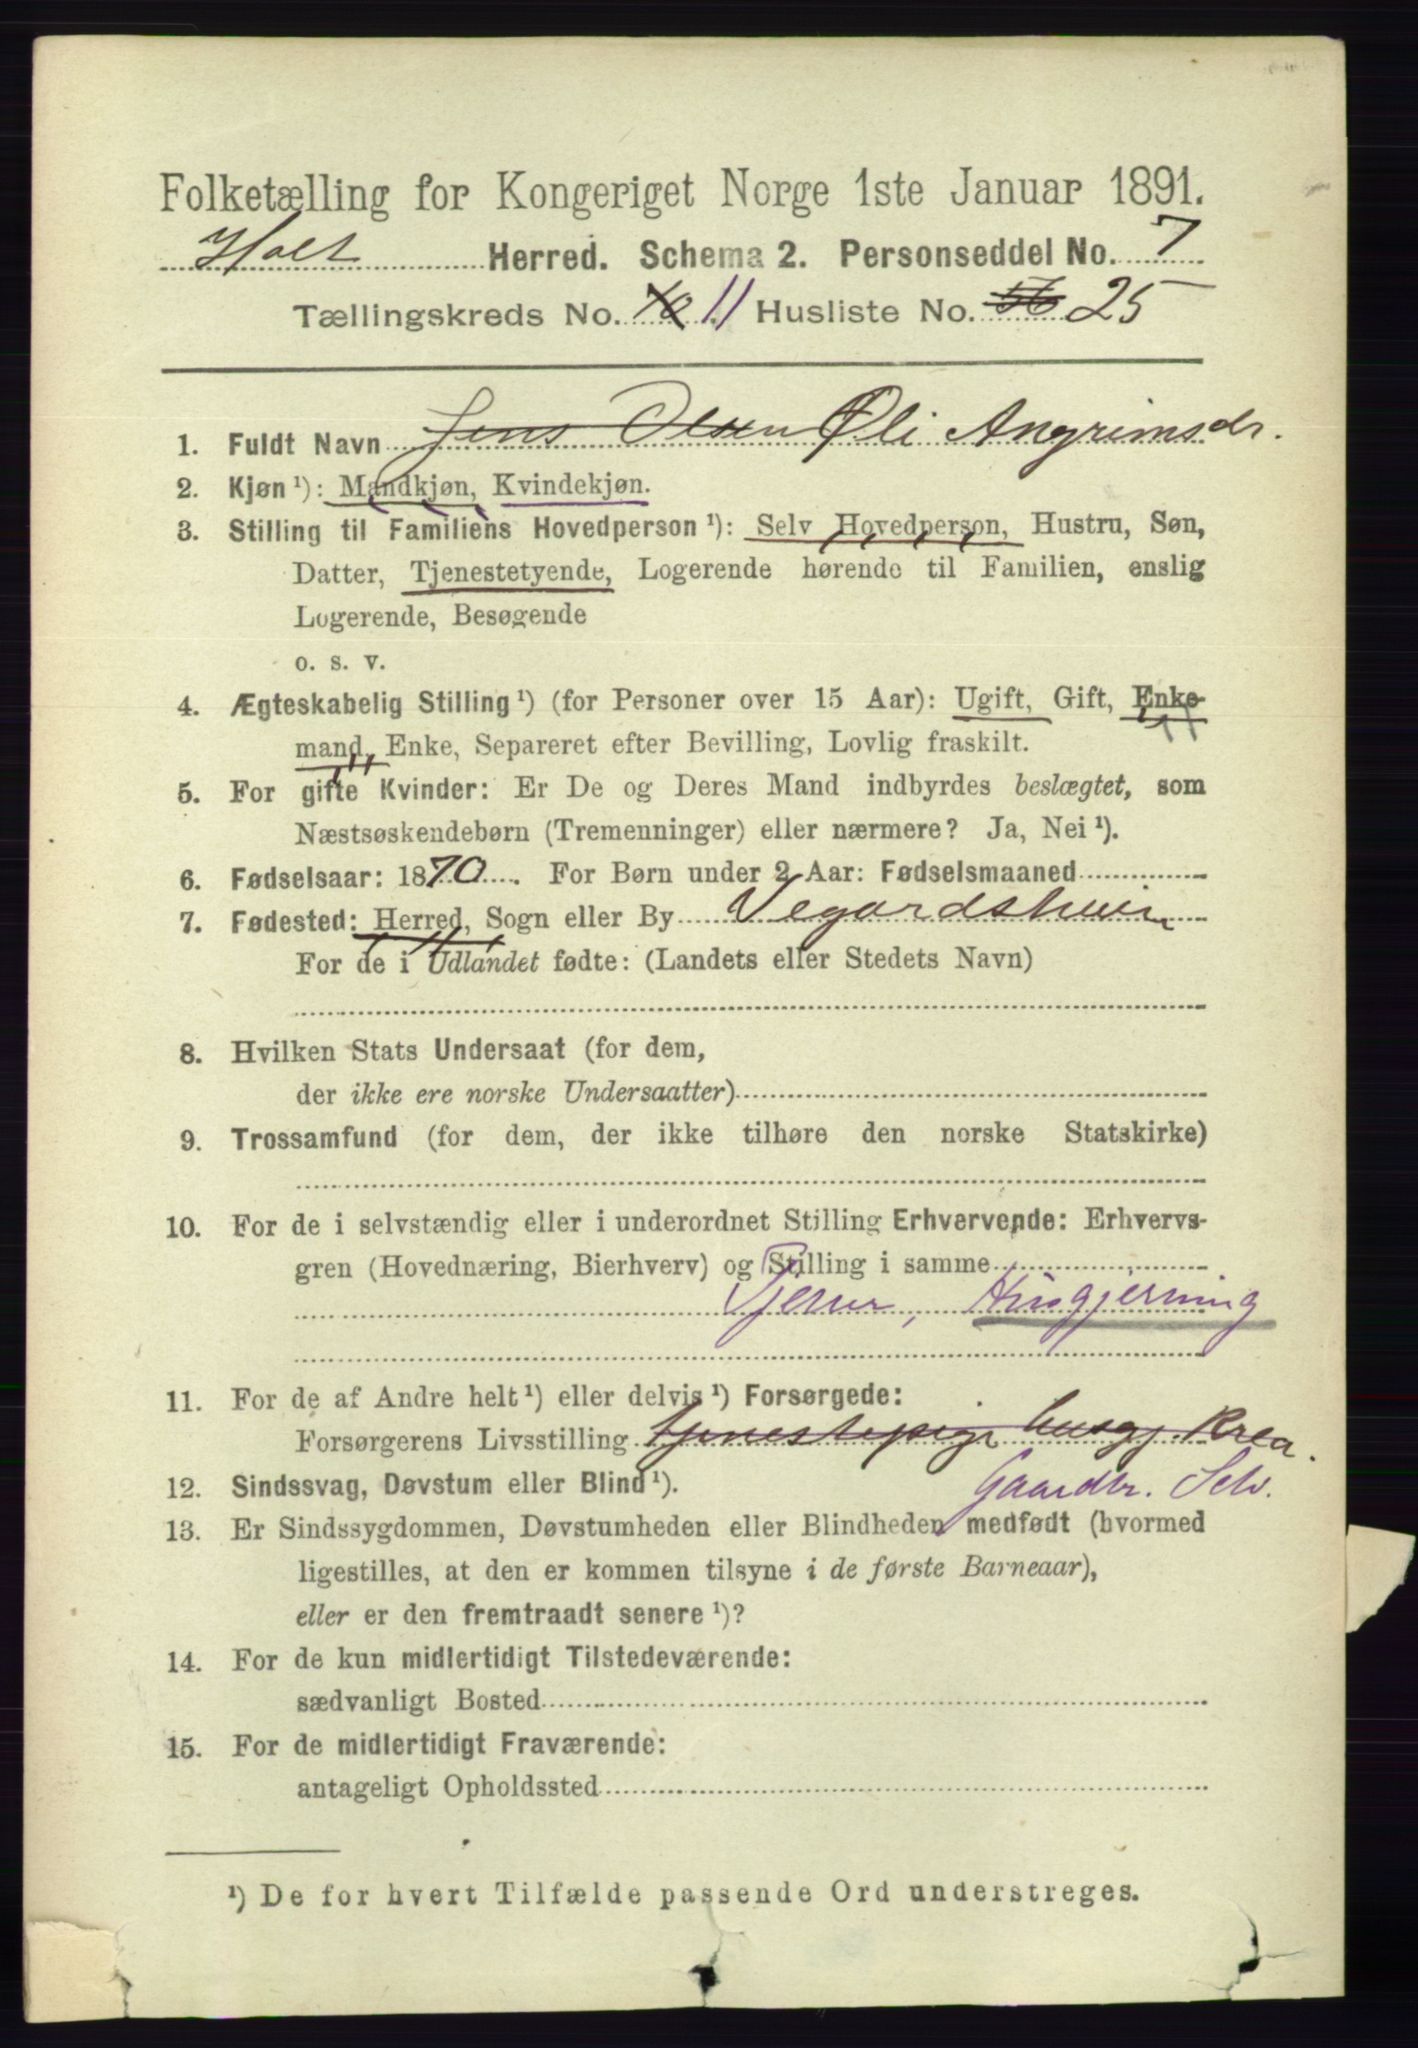 Folketælling for Kongeriget Norge 1ste Januar 1891.
Holt Herred. Schema 2. Personseddel No. 7
Tællingskreds No. 10 11 Husliste No. 25
1. Fuldt Navn Jens Olsen Øli Angrimsdr.
2. Kjøn ¹): Mandkjøn, Kvindekjøn.
3. Stilling til Familiens Hovedperson ¹): Selv Hovedperson, Hustru, Søn,
Datter, Tjenestetyende, Logerende hørende til Familien, enslig
Logerende, Besøgende
o. s. v.
4. Ægteskabelig Stilling ¹) (for Personer over 15 Aar): Ugift, Gift, Enke-
mand, Enke, Separeret efter Bevilling, Lovlig fraskilt.
5. For gifte Kvinder: Er De og Deres Mand indbyrdes beslægtet, som
Næstsøskendebørn (Tremenninger) eller nærmere? Ja, Nei ¹).
6. Fødselsaar: 1870. For Børn under 2 Aar: Fødselsmaaned
7. Fødested: Herred, Sogn eller By Vegardsheien
For de i Udlandet fødte: (Landets eller Stedets Navn)
8. Hvilken Stats Undersaat (for dem,
der ikke ere norske Undersaatter)
9. Trossamfund (for dem, der ikke tilhøre den norske Statskirke)
10. For de i selvstændig eller i underordnet Stilling Erhvervende: Erhvervs-
gren (Hovednæring, Bierhverv) og Stilling i samme
Tjener, Husgjerning
11. For de af Andre helt ¹) eller delvis ¹) Forsørgede:
Forsørgerens Livsstilling tjenestepige husgj. Krea.
12. Sindssvag, Døvstum eller Blind ¹). Gaardbr. Selv.
13. Er Sindssygdommen, Døvstumheden eller Blindheden medfødt (hvormed
ligestilles, at den er kommen tilsyne i de første Barneaar),
eller er den fremtraadt senere ¹)?
14. For de kun midlertidigt Tilstedeværende:
sædvanligt Bosted
15. For de midlertidigt Fraværende:
antageligt Opholdssted
¹) De for hvert Tilfælde passende Ord understreges.